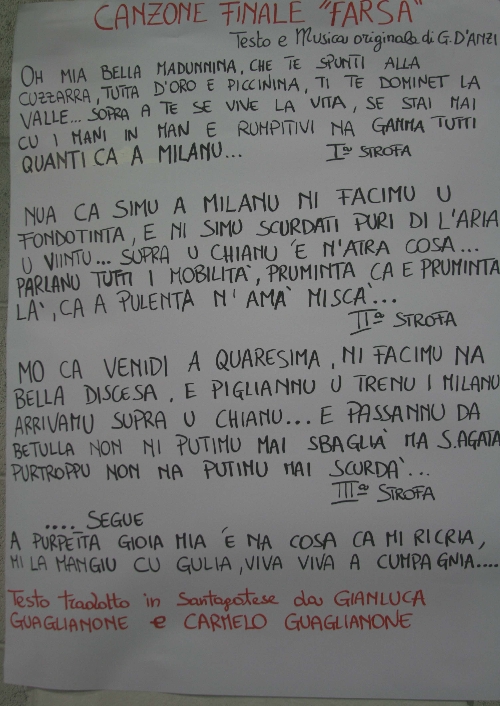 CANZONE FINALE "FARSA"
Testo e Musica originale di G. D'ANZI
OH MIA BELLA MADUNNINA, CHE TE SPUNTI ALLA
CUZZARRA, TUTTA D'ORO E PICCININA, TI TE DOMINET LA
VALLE... SOPRA A TE SE VIVE LA VITA, SE STAI MAI
CU I MANI IN MAN E RUMPITIVI NA GAMMA TUTTI
QUANTI CA A MILANU...
Iª STROFA
NUA CA SIMU A MILANU NI FACIMU U
FONDOTINTA, E NI SIMU SCURDATI PURI DI L'ARIA
U VIINTU... SUPRA U CHIANU È N'ATRA COSA...
PARLANU TUTTI I MOBILITA', PRUMINTA CA E PRUMINTA
LA', CA A PULENTA N'AMA' MISCA'...
IIª STROFA
MO CA VENIDI A QUARESIMA, NI FACIMU NA
BELLA DISCESA, E PIGLIANNU U TRENU I MILANU
ARRIVAMU SUPRA U CHIANU... E PASSANNU DA
BETULLA NON NI PUTIMU MAI SBAGLIA' MA S.AGATA
PURTROPPU NON NA PUTIMU MAI SCURDA'...
IIIª STROFA
.... SEGUE
A PURPETTA GIOIA MIA È NA COSA CA MI RICRIA,
MI LA MANGIU CU GULIA, VIVA VIVA A CUMPAGNIA....
Testo tradotto in Santagatese da GIANLUCA
GUAGLIANONE e CARMELO GUAGLIANONE